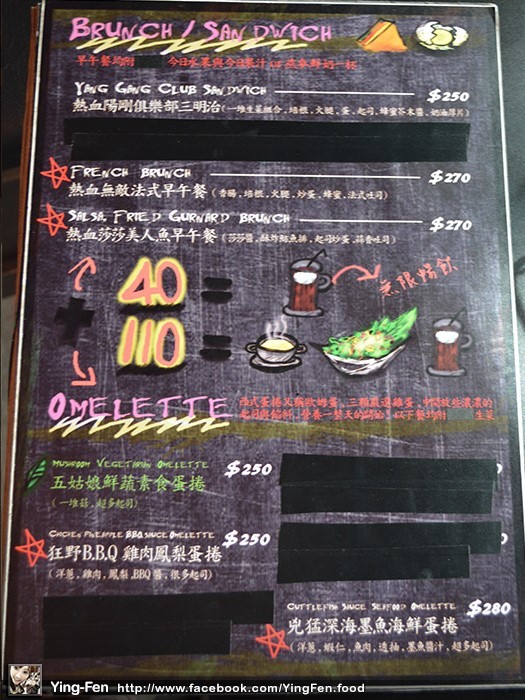 BRUNCH / SANDWICH
早午餐均附 今日水果與今日果汁 or 或拿鐵奶一杯
YANG GANG CLUB SANDWICH $250
熱血陽剛俱樂部三明治(一堆生菜組合,培根,火腿,蛋,起司,蜂蜜芥末醬,奶油厚片)
FRENCH BRUNCH $270
熱血無敵法式早午餐 (香腸,培根,火腿,炒蛋,蜂蜜,法式吐司)
SALSA FRIED GURNARD BRUNCH $270
熱血莎莎美人魚早午餐 (莎莎醬,酥炸魴魚排,起司炒蛋,蒜香吐司)
40 =
無限暢飲
+
110 =
OMELETTE
西式蛋捲又稱歐姆蛋,三顆嚴選雞蛋,中間放些濃濃的
起司與餡料,營養一整天的開始!以下餐均附 生菜
MUSHROOM VEGETARIAN OMELETTE $250
五姑娘鮮蔬素食蛋捲
(一堆菇,超多起司)
CHICKEN PINEAPPLE BBQ SAUCE OMELETTE $250
狂野B.B.Q 雞肉鳳梨蛋捲
(洋蔥,雞肉,鳳梨,BBQ醬,很多起司)
CUTTLEFISH SAUCE SEAFOOD OMELETTE $280
兇猛深海墨魚海鮮蛋捲
(洋蔥,蝦仁,魚肉,透抽,墨魚醬汁,超多起司)
Ying-Fen http://www.facebook.com/YingFen.food